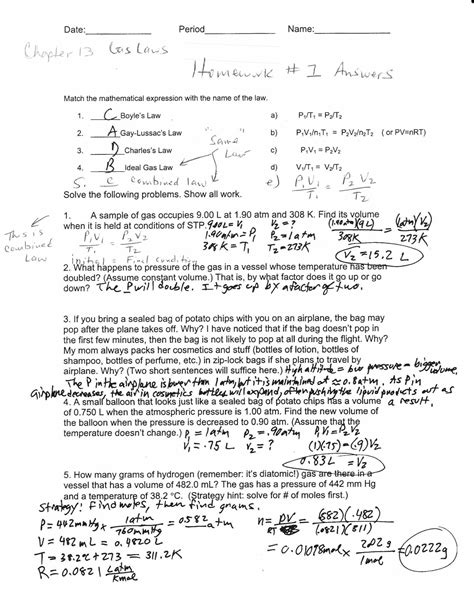 Date: Period Name:
Chapter 13 Gas Laws
Homework # 1 Answers
Match the mathematical expression with the name of the law.
1. C Boyle's Law a) P₁/T₁ = P₂/T₂
2. A Gay-Lussac's Law b) P₁V₁/n₁T₁ = P₂V₂/n₂T₂ ( or PV=nRT)
3. D Charles's Law c) P₁V₁ = P₂V₂
4. B Ideal Gas Law d) V₁/T₁ = V₂/T₂
"Same" Law
5. C Combined law e) P₁V₁/T₁ = P₂V₂/T₂
Solve the following problems. Show all work.
1. A sample of gas occupies 9.00 L at 1.90 atm and 308 K. Find its volume
when it is held at conditions of STP. 9.00L = V₁ V₂ = ? (1.90atm)(9L)/308K = (1atm)V₂/273K
This is combined Law
P₁V₁/T₁ = P₂V₂/T₂ 1.90atm = P₁ P₂ = 1atm
308K = T₁ T₂ = 273K V₂ = 15.2 L
initial = Final condition
2. What happens to pressure of the gas in a vessel whose temperature has been
doubled? (Assume constant volume.) That is, by what factor does it go up or go
down? The P will double. It goes up by a factor of two.
3. If you bring a sealed bag of potato chips with you on an airplane, the bag may
pop after the plane takes off. Why? I have noticed that if the bag doesn't pop in
the first few minutes, then the bag is not likely to pop at all during the flight. Why?
My mom always packs her cosmetics and stuff (bottles of lotion, bottles of
shampoo, bottles of perfume, etc.) in zip-lock bags if she plans to travel by
airplane. Why? (Two short sentences will suffice here.) High altitude = low pressure = bigger volume.
The P in the airplane is lower than 1 atm, but it is maintained at ≈ 0.8 atm. As P in
airplane decreases, the air in cosmetics bottles will expand, often pushing the liquid products out as
a result.
4. A small balloon that looks just like a sealed bag of potato chips has a volume
of 0.750 L when the atmospheric pressure is 1.00 atm. Find the new volume of
the balloon when the pressure is decreased to 0.90 atm. (Assume that the
temperature doesn't change.) P₁ = 1atm P₂ = .90atm P₁V₁ = P₂V₂
V₁ = .75 L V₂ = ? (1)(.75) = (.9)V₂
0.83 L = V₂
5. How many grams of hydrogen (remember: it's diatomic!) gas are there in a
vessel that has a volume of 482.0 mL? The gas has a pressure of 442 mm Hg
and a temperature of 38.2 °C. (Strategy hint: solve for # of moles first.)
Strategy: Find moles, then find grams.
P = 442mmHg × 1atm/760mmHg = 0.582 atm n = PV/RT = (.582)(.482)/(.0821)(311)
V = 482 mL = 0.4820 L
T = 38.2 + 273 = 311.2K = 0.01098mol × 2.02g/1mol = 0.0222g
R = 0.0821 Latm/Kmol